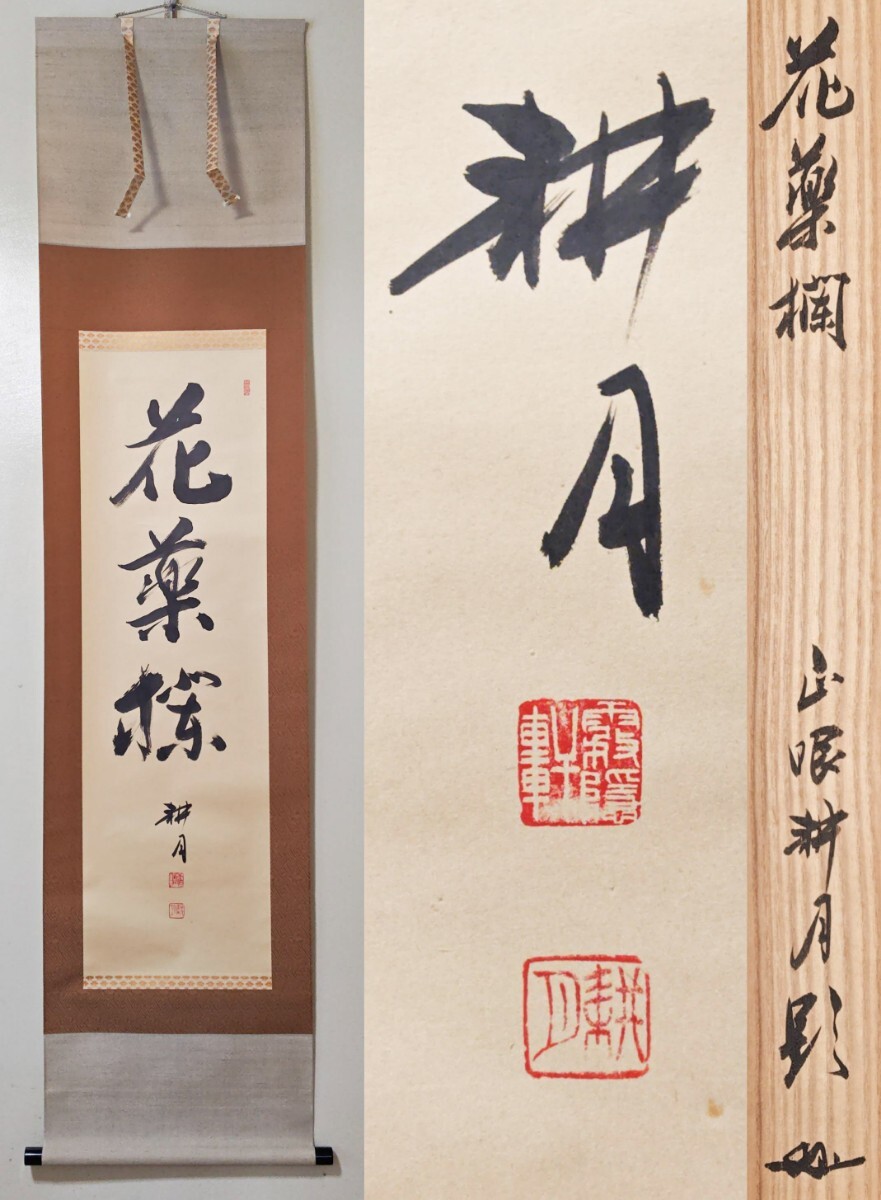 花薬欄
耕月
耕月
耕月
花薬欄
正眼耕月題